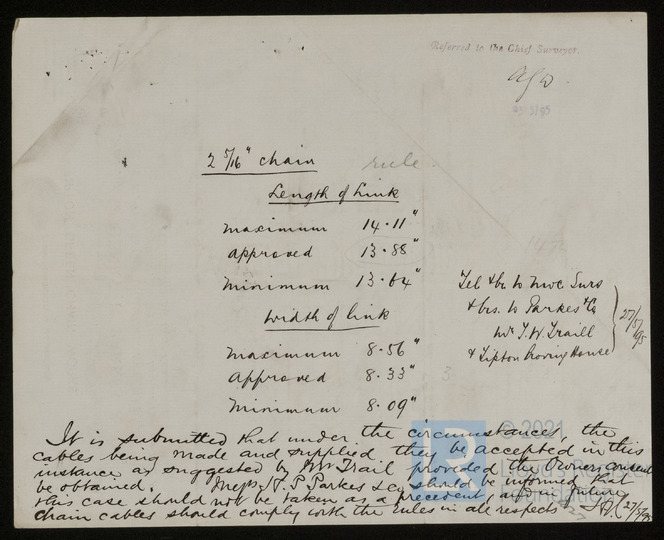 Referred to the Chief Surveyor.
2 5/16" chain rule.
Length of Link
Maximum 14.11"
Approved 13.88"
Minimum 13.64"
Width of link
Maximum 8.56"
Approved 8.33"
Minimum 8.09"
Tel &
& lrs. to Parkes & Co
Mr T. W. Traill
& Tipton Proving House
27/5/95
© 2021
It is submitted that under the circumstances, the
cables being made and supplied, they be accepted in this
instance as suggested by Mr Trail provided the Owners consent
be obtained. Messrs H. P. Parkes & Co should be informed that
this case should not be taken as a precedent, and in future
chain cables should comply with the rules in all respects 27/5/95